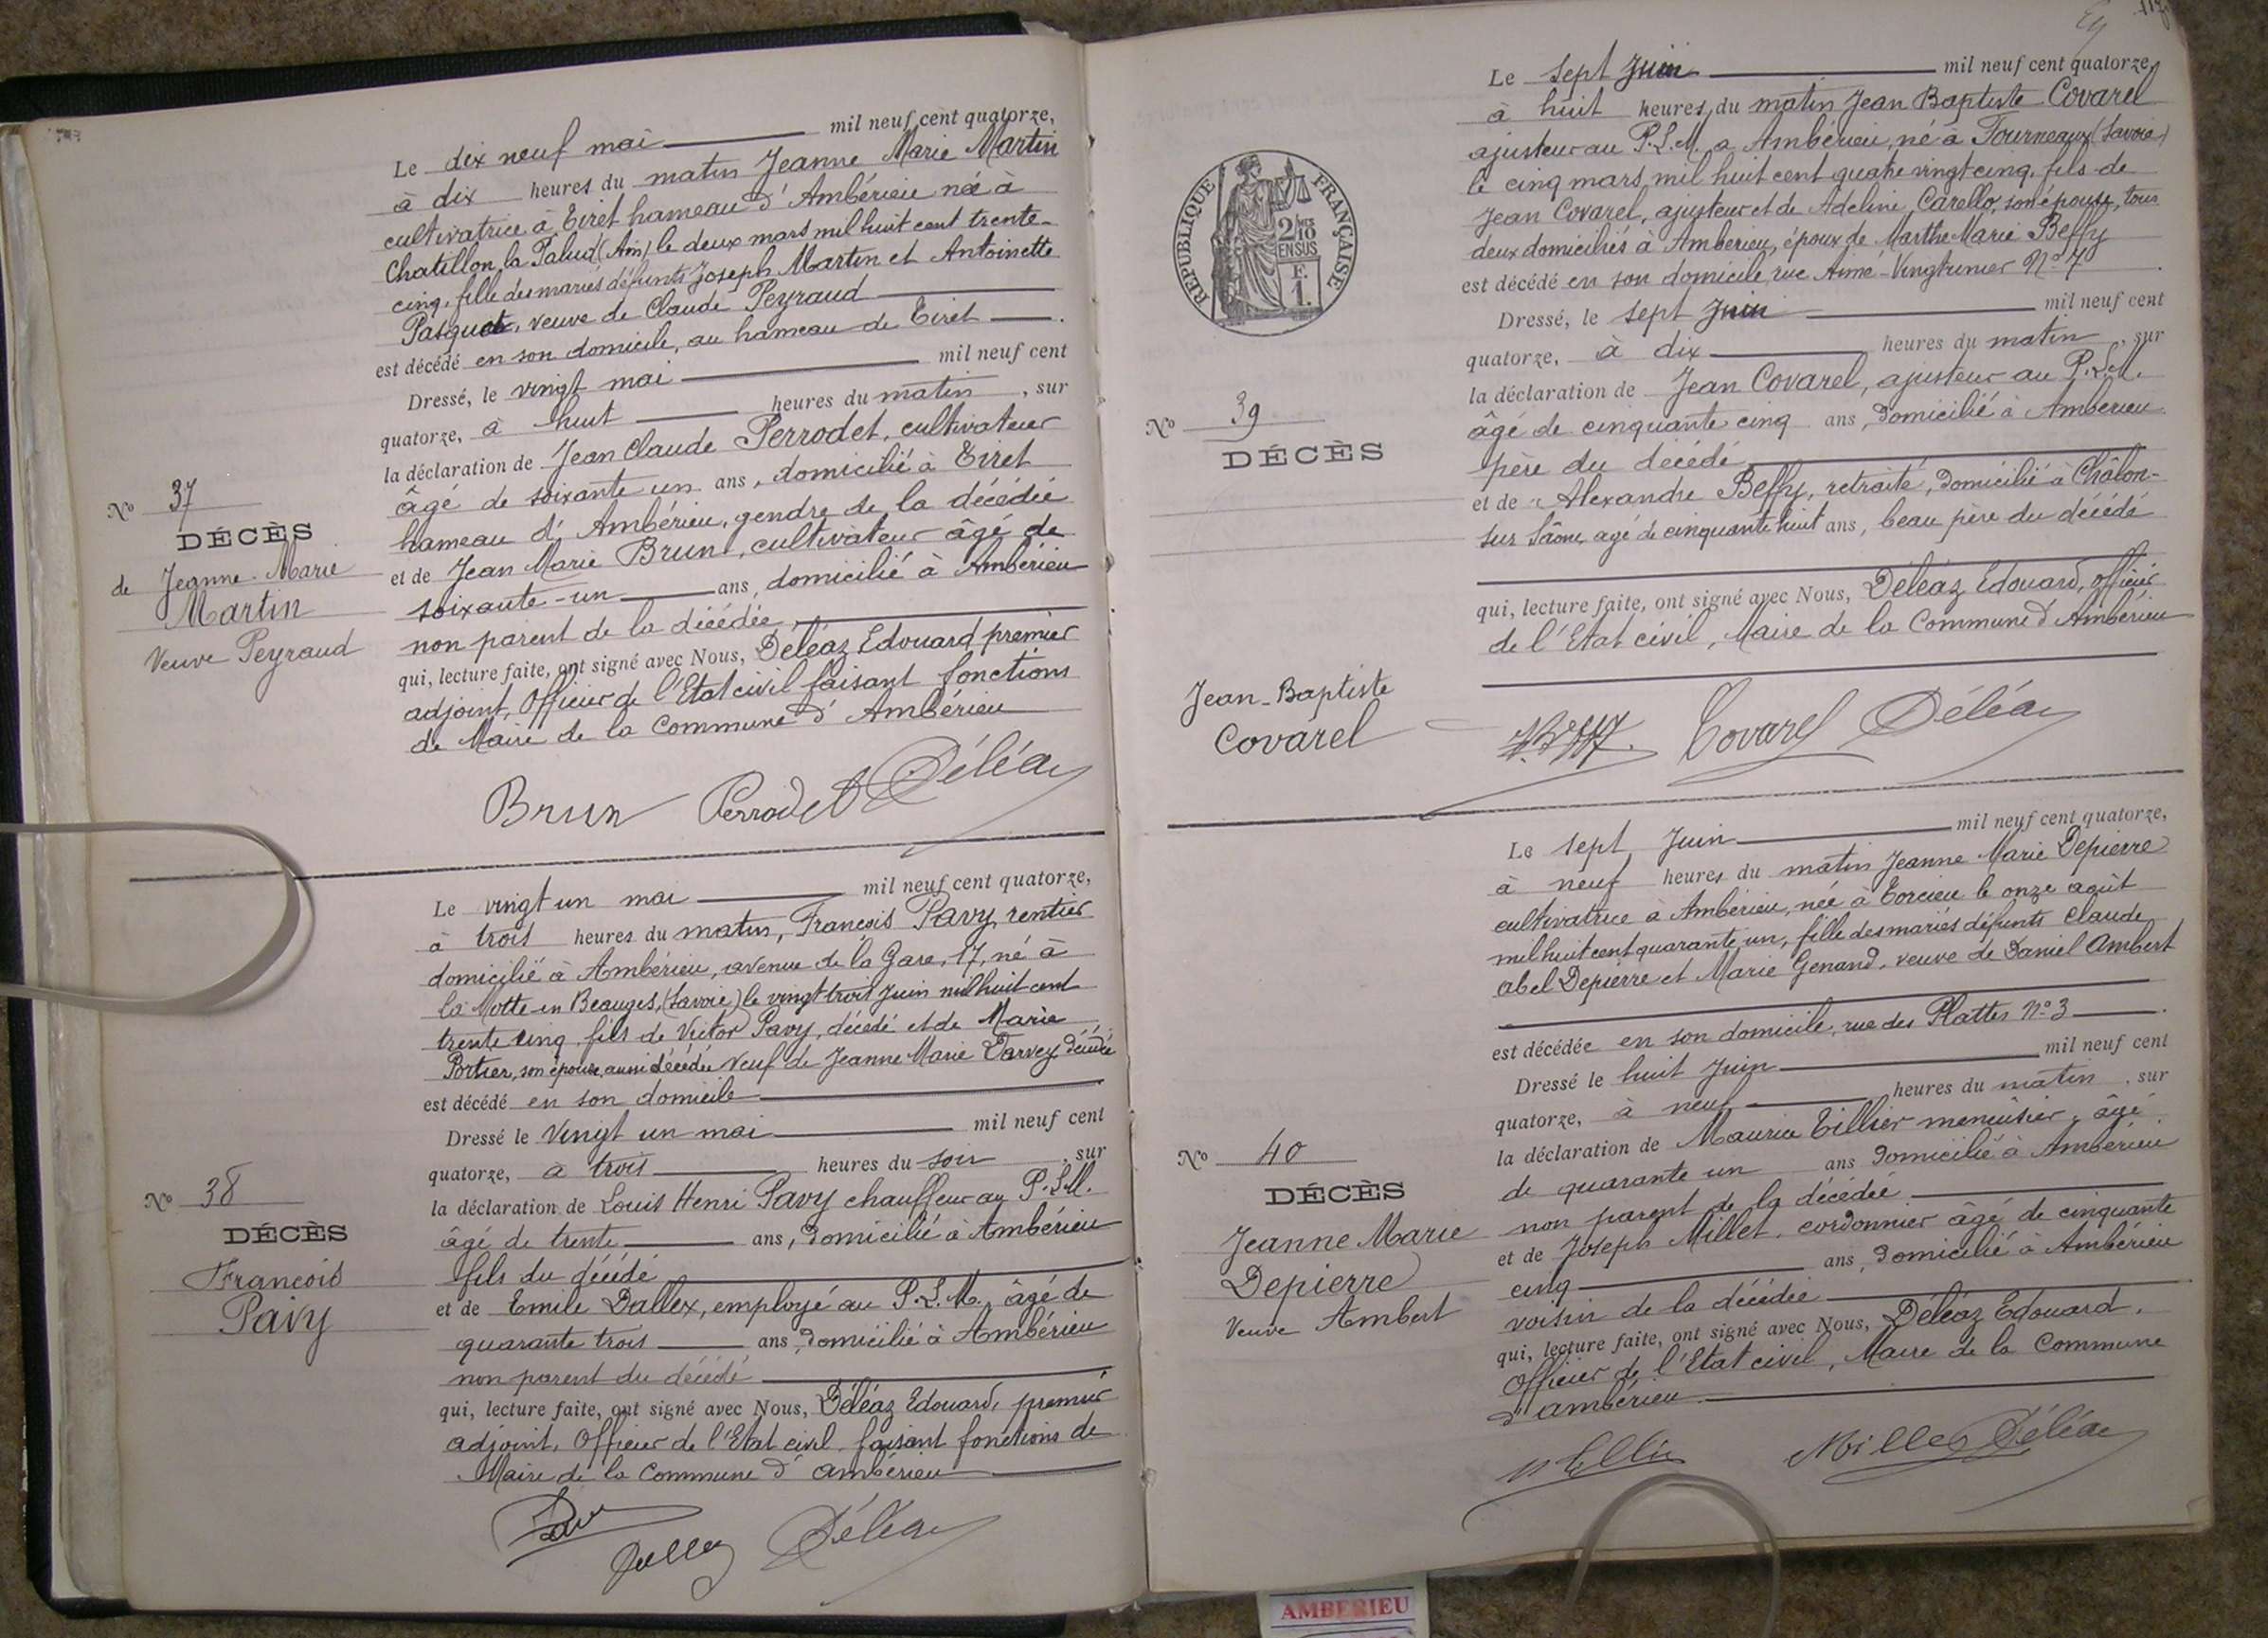 Le dix neuf mai mil neuf cent quatorze,
à dix heures du matin Jeanne Marie Martin
cultivatrice à Tiret hameau d'Ambérieu née à
Chatillon la Palud (Ain) le deux mars mil huit cent trente-
cinq, fille des mariés défunts Joseph Martin et Antoinette
Pasquet, veuve de Claude Peyraud
est décédé en son domicile, au hameau de Tiret.
Dressé, le vingt mai mil neuf cent
quatorze, à huit heures du matin, sur
la déclaration de Jean Claude Perrodet, cultivateur
âgé de soixante un ans, domicilié à Tiret
hameau d'Ambérieu, gendre de la décédée
et de Jean Marie Brun, cultivateur âgé de
soixante-un ans, domicilié à Ambérieu
non parent de la décédée,
qui, lecture faite, ont signé avec Nous, Déléaz Edouard premier
adjoint, Officier de l'Etat civil faisant fonctions
de Maire de la Commune d'Ambérieu
No 37
DÉCÈS
de Jeanne-Marie
Martin
Veuve Peyraud
Brun Perrodet Déléaz
Le vingt un mai mil neuf cent quatorze,
à trois heures du matin, François Pavy, rentier
domicilié à Ambérieu, avenue de la Gare, 17, né à
la Motte-en Beauges, (Savoie) le vingt trois Juin mil huit cent
trente cinq, fils de Victor Pavy, décédé et de Marie
Portier, son épouse, aussi décédée veuf de Jeanne Marie Darvey décédée
est décédé en son domicile
Dressé le vingt un mai mil neuf cent
quatorze, à trois heures du soir, sur
la déclaration de Louis Henri Pavy chauffeur au P.L.M.
âgé de trente ans, domicilié à Ambérieu
fils du décédé
et de Emile Dallex, employé au P.L.M., âgé de
quarante trois ans, domicilié à Ambérieu
non parent du décédé
qui, lecture faite, ont signé avec Nous, Déléaz Edouard, premier
adjoint, Officier de l'Etat civil faisant fonctions de
Maire de la Commune d'ambérieu
No 38
DÉCÈS
François
Pavy
Déléaz
RÉPUBLIQUE FRANÇAISE
2/10
EN SUS
F.
1.
Le sept Juin mil neuf cent quatorze,
à huit heures, du matin Jean Baptiste Covarel
ajusteur au P.L.M. a Ambérieu, né à Fourneaux (Savoie)
le cinq mars mil huit cent quatre vingt cinq, fils de
Jean Covarel, ajusteur et de Adeline Carello, son épouse, tous
deux domiciliés à Ambérieu, époux de Marthe Marie Beffy
est décédé en son domicile, rue Aimé-Vingtrinier No 7
Dressé, le sept Juin mil neuf cent
quatorze, à dix heures du matin, sur
la déclaration de Jean Covarel, ajusteur au P.L.M.
âgé de cinquante cinq ans, domicilié à Ambérieu
père du décédé
et de Alexandre Beffy, retraité, domicilié à Châlon-
sur Saône, agé de cinquante huit ans, beau père du décédé
qui, lecture faite, ont signé avec Nous, Déléaz Edouard, officier
de l'Etat civil, Maire de la Commune d'Ambérieu
No 39
DÉCÈS
Jean-Baptiste
Covarel
Covarel Déléaz
Le sept Juin mil neuf cent quatorze,
à neuf heures du matin Jeanne Marie Depierre
cultivatrice à Ambérieu, née à Torcieu le onze août
mil huit cent quarante un, fille des mariés défunts Claude
abel Depierre et Marie Genand, veuve de Daniel Ambert
est décédée en son domicile, rue des Plattes No 3.
Dressé le huit Juin mil neuf cent
quatorze, à neuf heures du matin, sur
la déclaration de Maurice Tillier menuisier, âgé
de quarante un ans domicilié à Ambérieu
non parent de la décédée
et de Joseph Millet, cordonnier âgé de cinquante
cinq ans, domicilié à Ambérieu
voisin de la décédée
qui, lecture faite, ont signé avec Nous, Déléaz Edouard,
Officier de l'Etat civil, Maire de la Commune
d'ambérieu
No 40
DÉCÈS
Jeanne Marie
Depierre
Veuve Ambert
Millet Déléaz
AMBERIEU